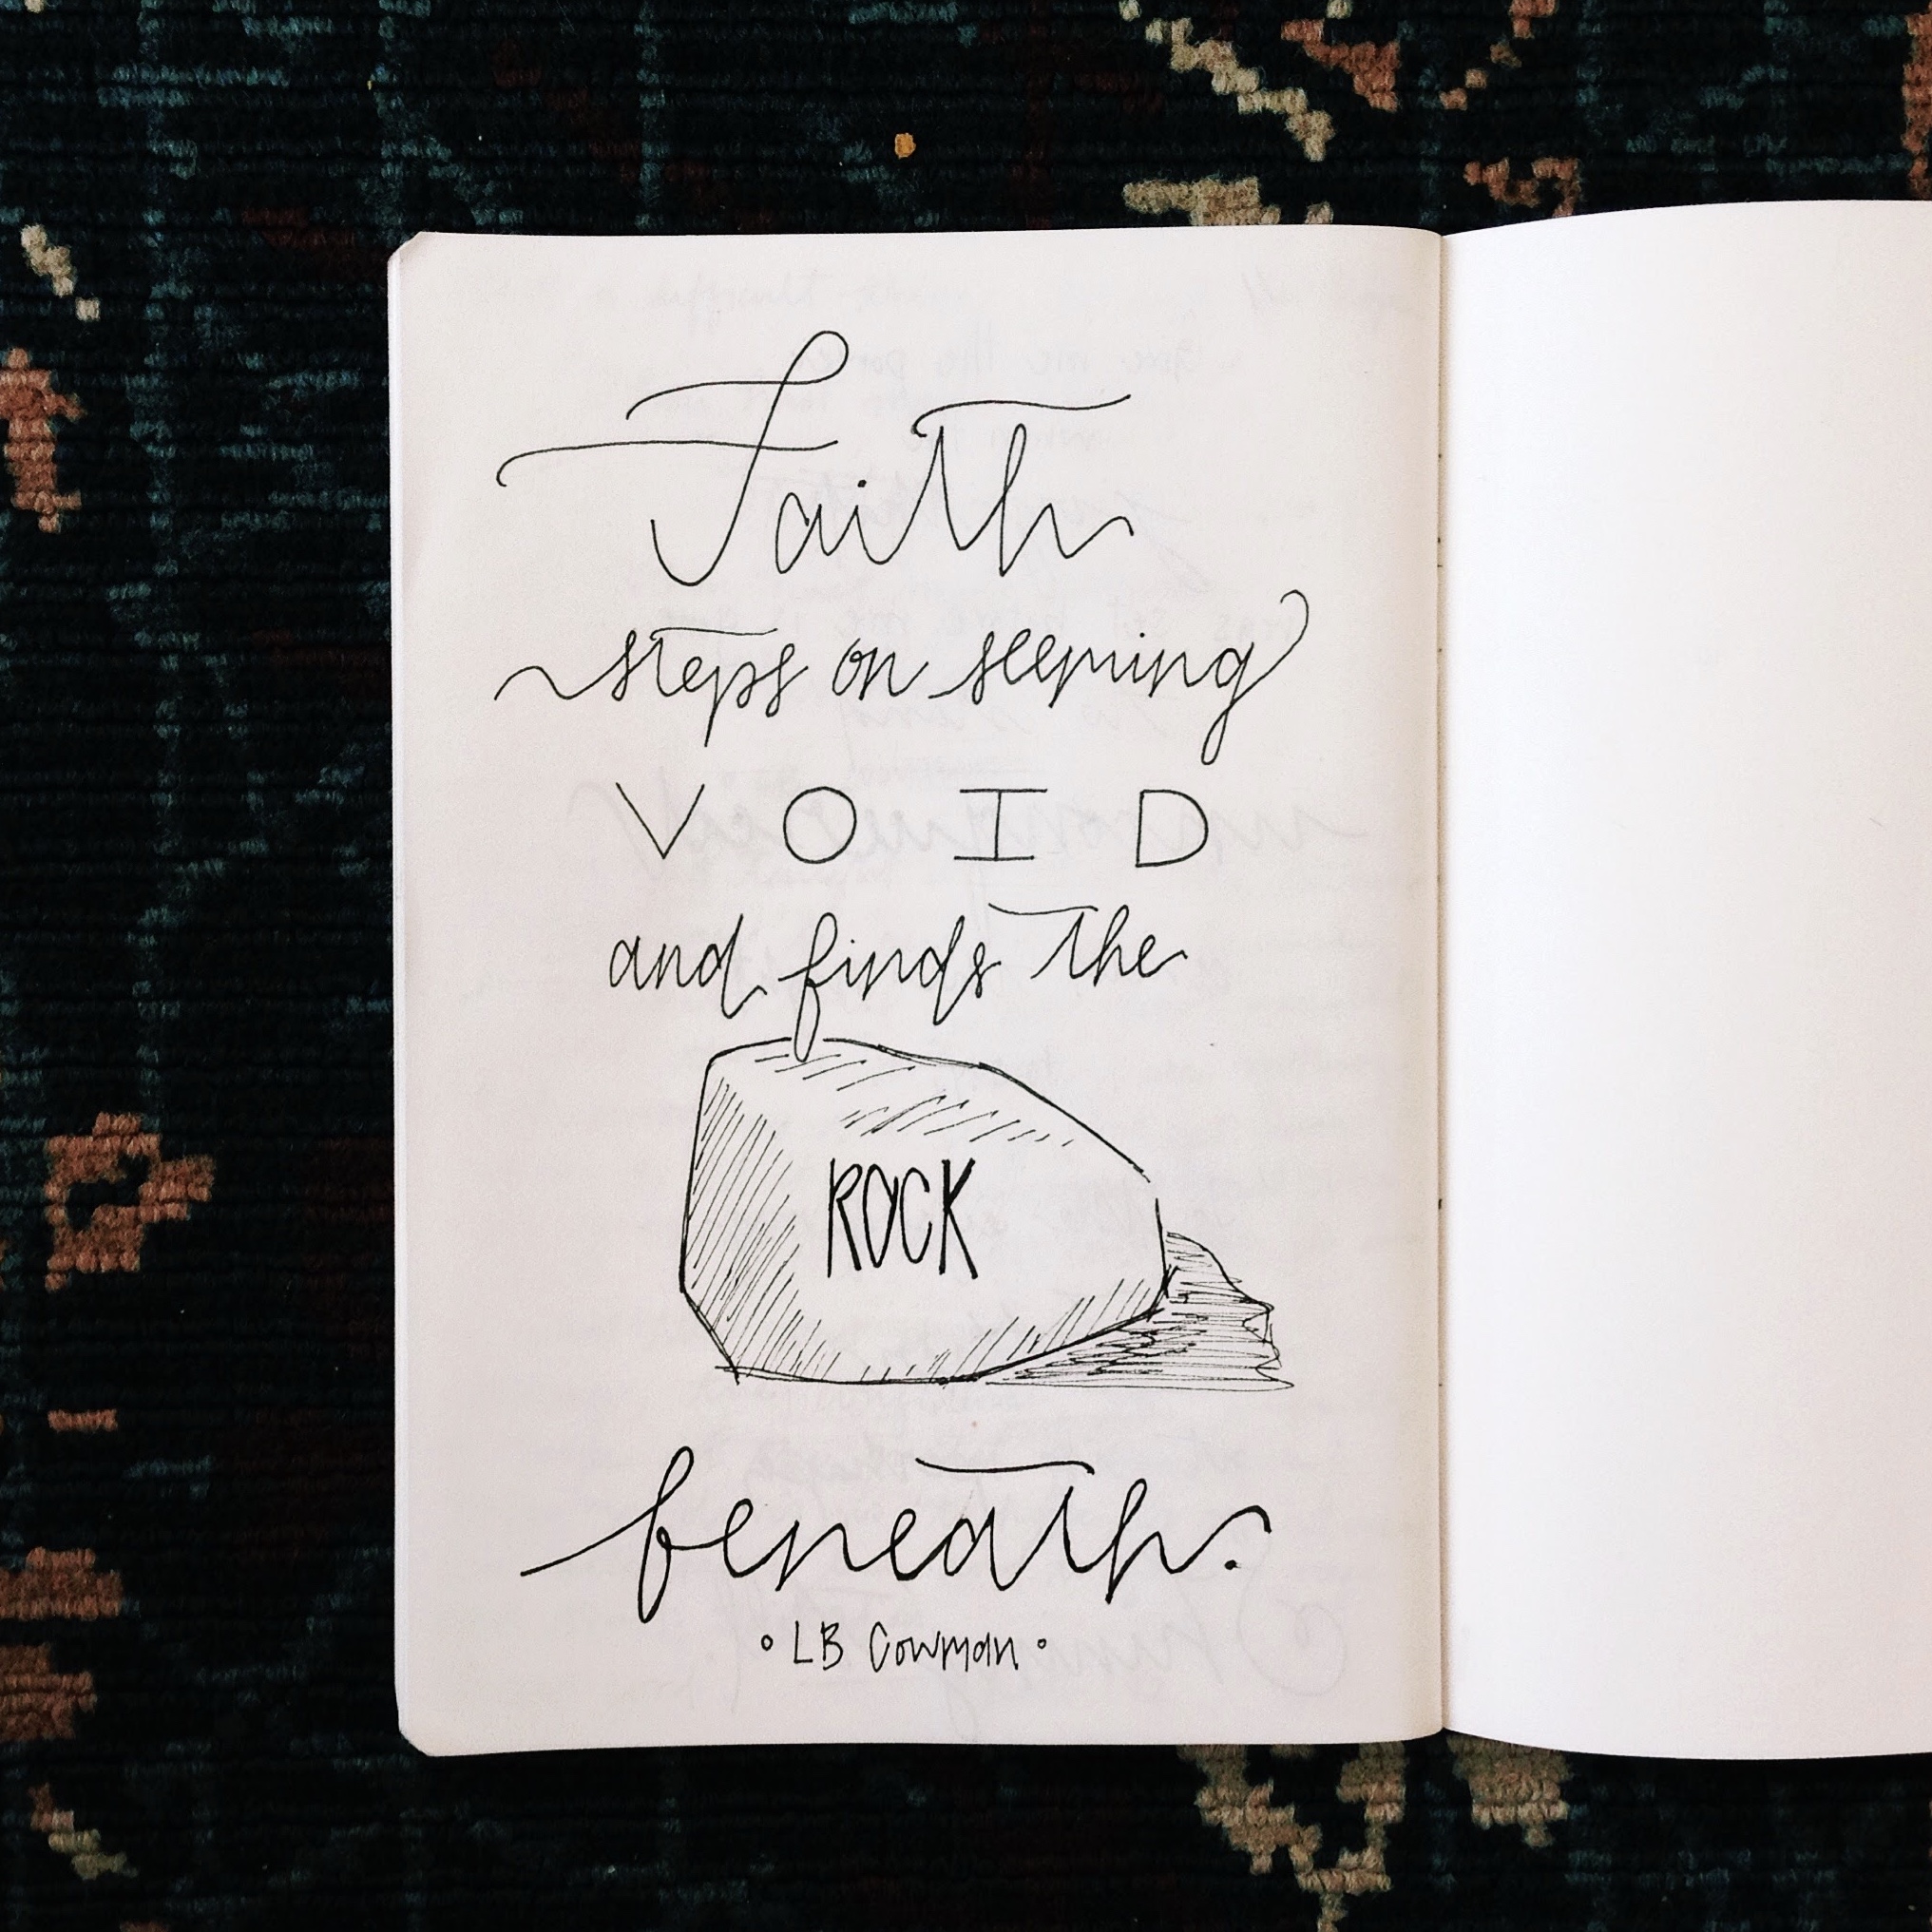 Faith
steps on seeming
VOID
and finds the
ROCK
beneath.
° LB Cowman °